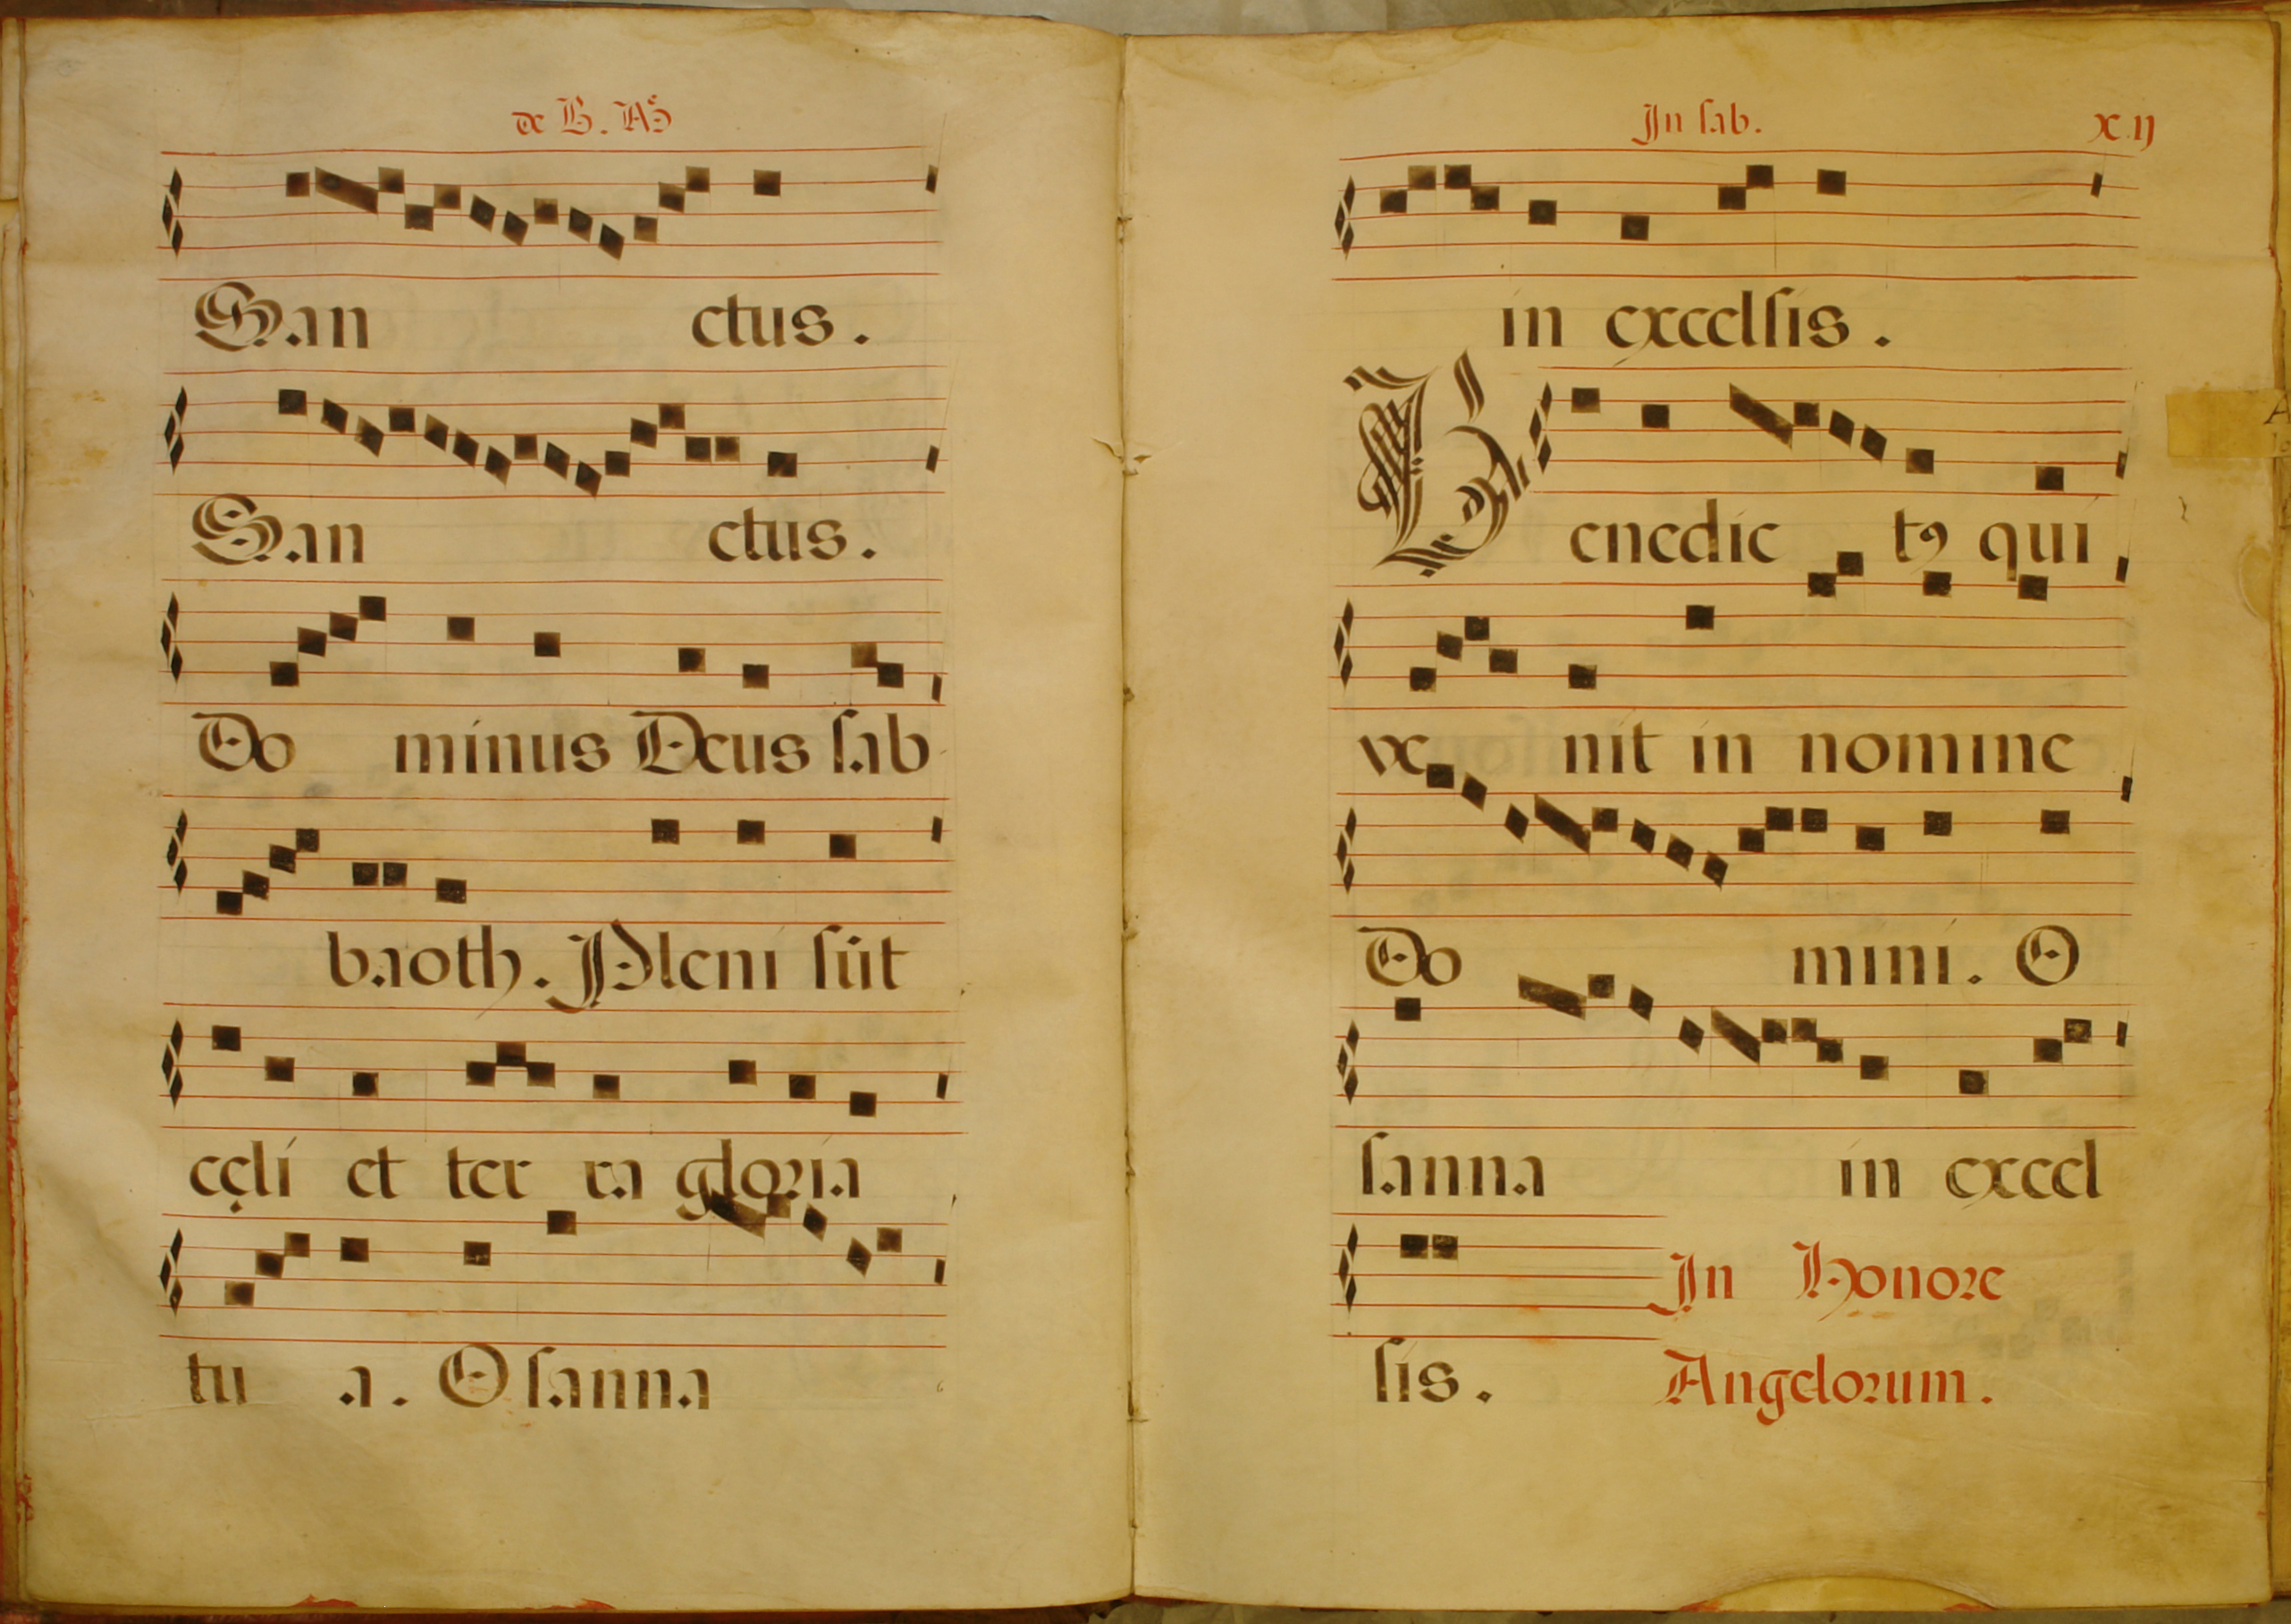 de B. Mᵉ
San ctus.
San ctus.
Do minus Deus sab
baoth. Pleni sũt
cęli et ter ra gloria
tu a. Osanna
In sab. xij
in excelsis.
Benedic tꝰ qui
ve nit in nomine
Do mini. O
sanna in excel
sis. In Honore
Angelorum.